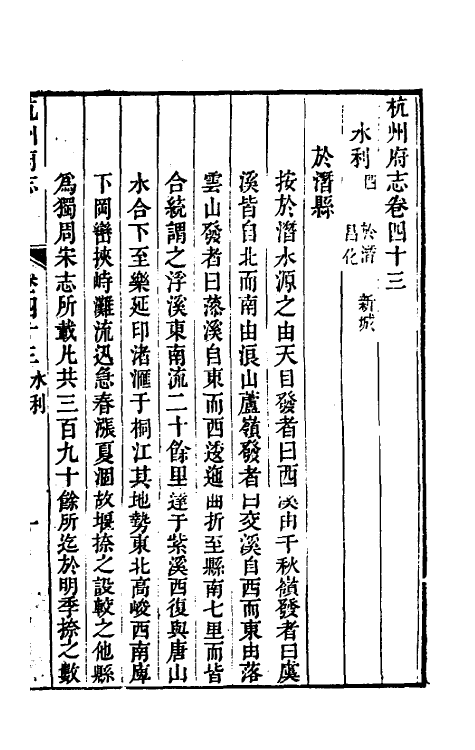 杭州府志卷四十三
水利四 於潛 新城 昌化
於潛縣
按於潛水源之由天目發者曰西溪由千秋嶺發者曰虞
溪皆自北而南由浪山蘆嶺發者曰交溪自西而東由落
雲山發者曰藻溪自東而西透迤曲折至縣南七里而皆
合統謂之浮溪東南流二十餘里達于紫溪西復與唐山
水合下至樂延印渚滙于桐江其地勢東北高峻西南庳
下岡巒挾峙灘流迅急春漲夏涸故堰捺之設較之他縣
爲獨周宋志所載凡共三百九十餘所迄於明季捺之數
杭州府志
卷四十三 水利
一